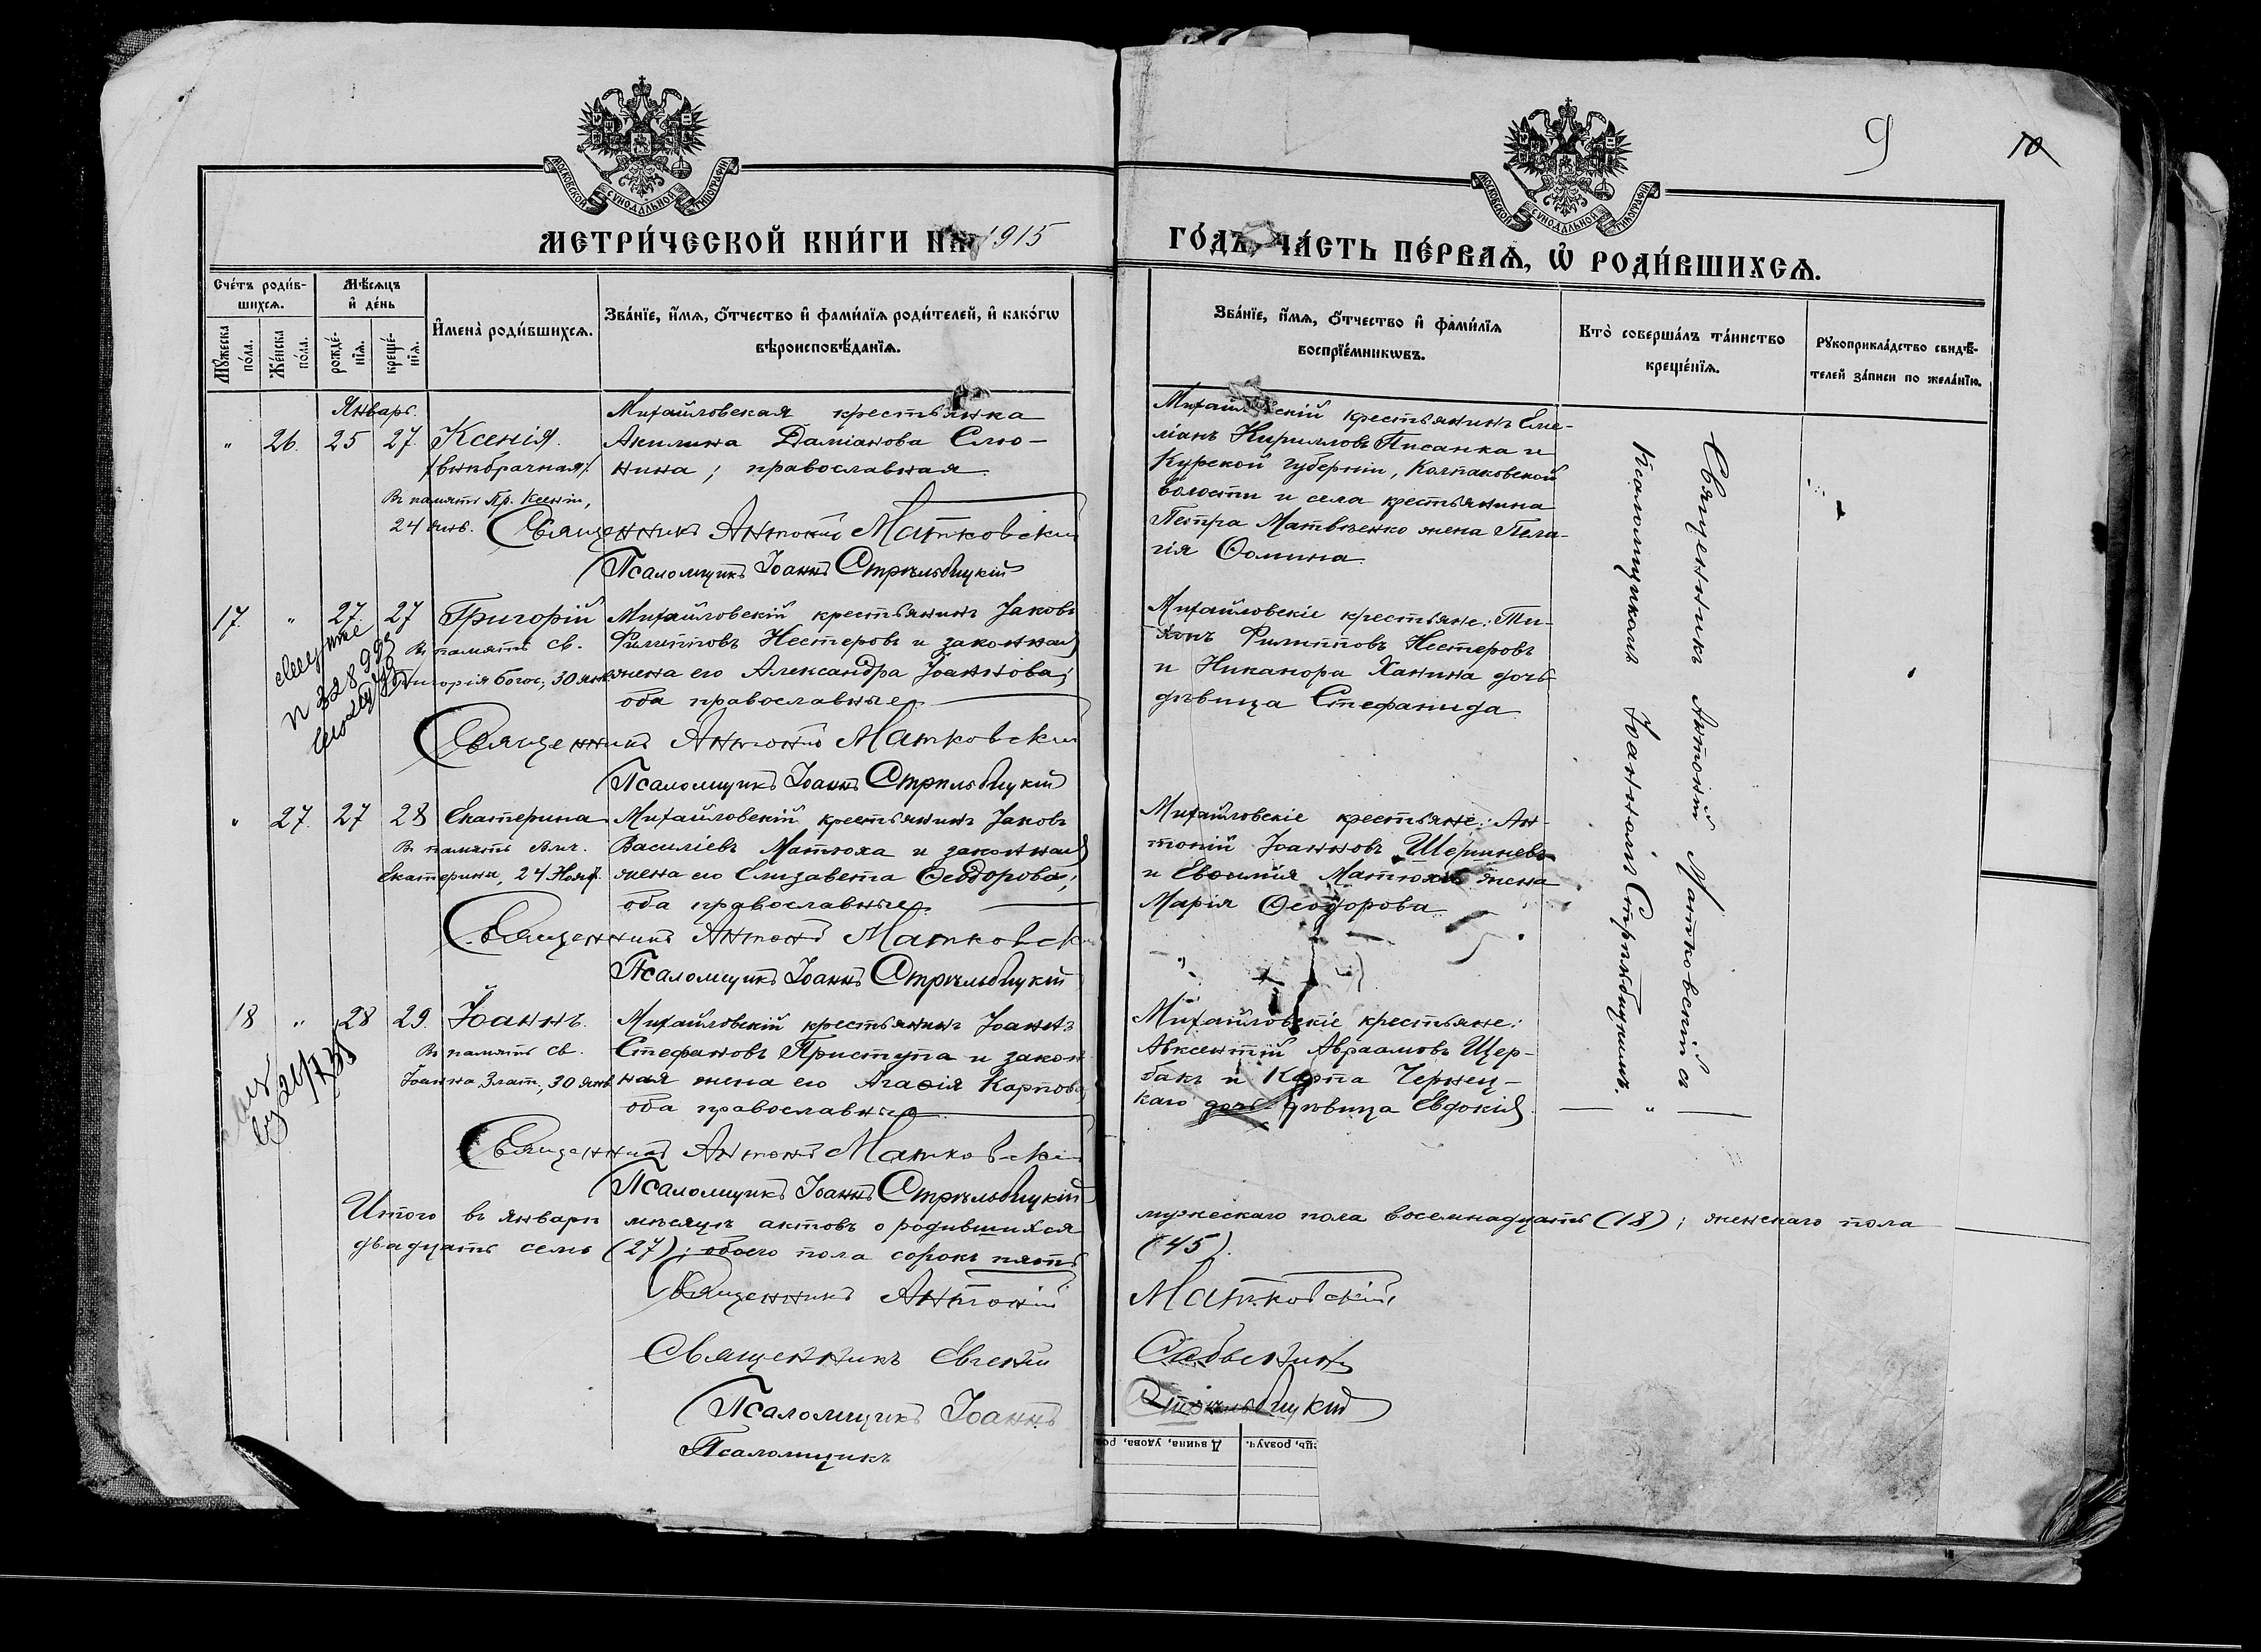 9
10
МОСКОВСКОЙ СѴНОДАЛЬНОЙ ТИПОГРАФІИ
МОСКОВСКОЙ СѴНОДАЛЬНОЙ ТИПОГРАФІИ
МЕТРИ́ЧЕСКОЙ КНИ́ГИ НА 1915
ГО́ДЪ, ЧА́СТЬ ПЕ́РВАѦ, Ѡ҆ РОДИ́ВШИХСѦ.
Сче́тъ роди́в-
шихсѧ.
Мѣ́сѧцъ
и҆ де́нь
Мꙋ́жеска
по́ла.
Же́нска
по́ла.
рожде́-
нїѧ.
креще́-
нїѧ.
И҆мена̀ роди́вшихсѧ.
Зва́нїе, и҆́мѧ, ѻ҆́тчество и҆ фами́лїѧ роди́телей, и҆ како́гѡ
вѣроисповѣ́данїѧ.
Зва́нїе, и҆́мѧ, ѻ҆́тчество и҆ фами́лїѧ
воспрїе́мникѡвъ.
Кто̀ соверша́лъ та́инство
креще́нїѧ.
Рꙋкоприкла́дство свидѣ́-
телей за́писи по жела́нїю.
Январь.
" 26. 25 27. Ксенія
(внѣбрачная).
Въ память Пр. Ксеніи,
24 янв.
Михайловская крестьянка
Акилина Даміанова Слю-
нина; православная
Священникъ Антоній Матковскій
Псаломщикъ Іоаннъ Стрѣльбицкій
Михайловскій крестьянинъ Еме-
ліанъ Кирилловъ Писанка и
Курской губерніи, Колпаковской
волости и села крестьянина
Петра Матвѣенко жена Пела-
гія Ѳомина
17. " 27. 27 Григорій
Въ память св.
Григорія Богос., 30 янв.
Михайловскій крестьянинъ Іаковъ
Филипповъ Нестеровъ и законная
жена его Александра Іоаннова;
оба православные
Священникъ Антоній Матковскій
Псаломщикъ Іоаннъ Стрѣльбицкій
Михайловскіе крестьяне: Ти-
хонъ Филипповъ Нестеровъ
и Никанора Ханина дочь
дѣвица Стефанида
" 27. 27 28 Екатерина
Въ память Влч.
Екатерины, 24 Нояб.
Михайловскій крестьянинъ Іаковъ
Василіевъ Матюха и законная
жена его Елизавета Ѳеодорова;
оба православные
Священникъ Антоній Матковскій
Псаломщикъ Іоаннъ Стрѣльбицкій
Михайловскіе крестьяне: Ан-
тоній Іоанновъ
и Евѳимія Матюхи жена
Марія Ѳеодорова
18 " 28 29. Іоаннъ.
Въ память св.
Іоанна Злат., 30 янв.
Михайловскій крестьянинъ Іоаннъ
Стефановъ Приступа и закон
ная жена его Агаѳія Карпова
оба православные
Священникъ Антоній Матковскій
Псаломщикъ Іоаннъ Стрѣльбицкій
Михайловскіе крестьяне:
Авксентій Авраамовъ Щер-
бакъ и Карпа Чернец-
каго дочь дѣвица Евдокія
Священникъ Антоній Матковскій съ
Псаломщикомъ Іоанномъ Стрѣльбицкимъ.
Итого въ январѣ мѣсяцѣ актовъ о родившихся мужескаго пола восемнадцать (18); женскаго пола
двадцать семь (27); обоего пола сорокъ пять (45).
Священникъ Антоній Матковскій
Священникъ Евгеній
Псаломщикъ Іоаннъ Стрѣльбицкій
Псаломщикъ
Дѣвчина, удова, роз
розлуч.